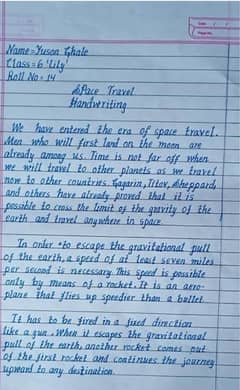 Date
Page No.
Name = Yuson Ghale
Class = 6 'Lily'
Roll No = 14
Space Travel
Handwriting
We have entered the era of space travel.
Men who will first land on the moon are
already among us. Time is not far off when
we will travel to other planets as we travel
now to other countries. Gagarin, Titov, Sheppard,
and others have already proved that it is
possible to cross the limit of the gravity of the
earth and travel anywhere in space.
In order to escape the gravitational pull
of the earth, a speed of at least seven miles
per second is necessary. This speed is possible
only by means of a rocket. It is an aero-
plane that flies up speedier than a bullet.
It has to be fired in a fixed direction
like a gun. When it escapes the gravitational
pull of the earth, another rocket comes out
of the first rocket and continues the journey
upward to any destination.